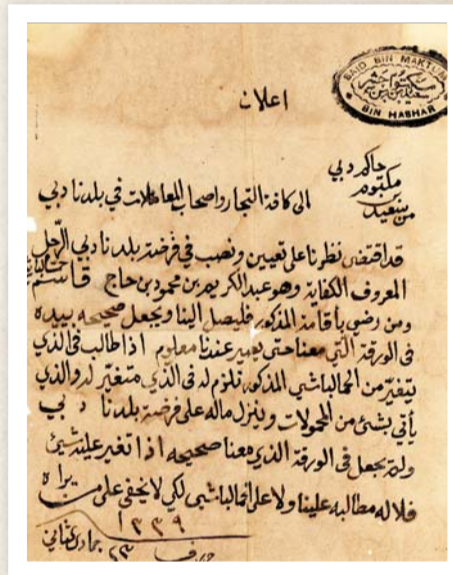 SAID BIN MAKTUM
BIN HASHAR
اعلان
حاكم دبي
مكتوم
من سعيد بن
الى كافة التجار واصحاب المعاملات في بلدنا دبي
قد اقتضى نظرنا على تعيين ونصب في فرضة بلدنا دبي الرجل
المعروف الكفاية وهو عبد الكريم بن محمود بن حاج قاسم
ومن رضي بأقامة المذكور فليصل الينا ويجعل صحيحه بيده
في الورقة التي معنا حتى يصير عندنا معلوم اذا طالب في الذي
يتغير من الحمالباشي المذكور تلزم له في الذي متغير له والذي
يأتي بشئ من المحمولات وينزل ماله على فرضة بلدنا دبي
ولم يجعل في الورقة الذي معنا صحيحه اذا تغير عليه شئ
فلا له مطالبه علينا ولا على الحمالباشي لكي لا يخفى على من يراه
١٣٣٩
٢٣ جمادى ثاني